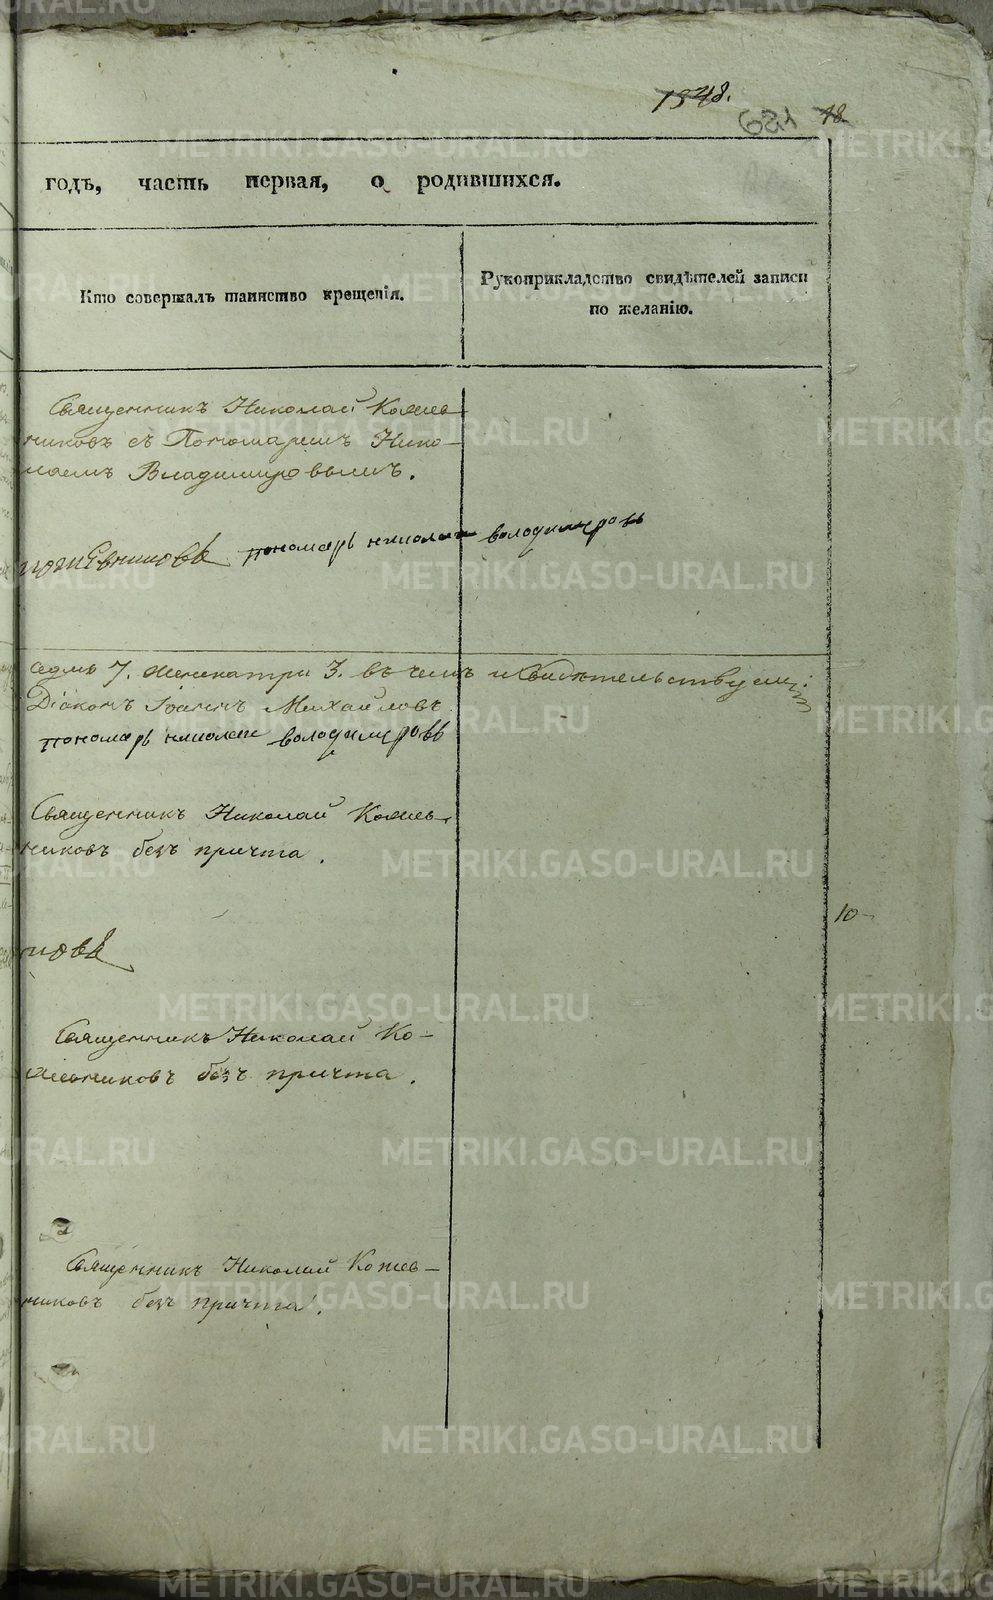 1848.
годъ, часть первая, о родившихся.
Кто совершалъ таинство крещенія.
Рукоприкладство свидѣтелей записи
по желанію.
Священникъ Николай Кожев-
никовъ съ Пономаремъ Нико-
лаемъ Владимировымъ.
Кожевниковъ пономарь николаи володимировъ
седмь 7. женска три 3. въ чемъ и свидѣтельствуемъ
Діаконъ Іоаннъ Михайловъ
пономарь николаи володимировъ
Священникъ Николай Кожев-
никовъ безъ причта.
10-
новъ
Священникъ Николай Ко-
жевниковъ безъ причта.
Священникъ Николай Кожев-
никовъ безъ причта.
METRIKI.GASO-URAL.RU